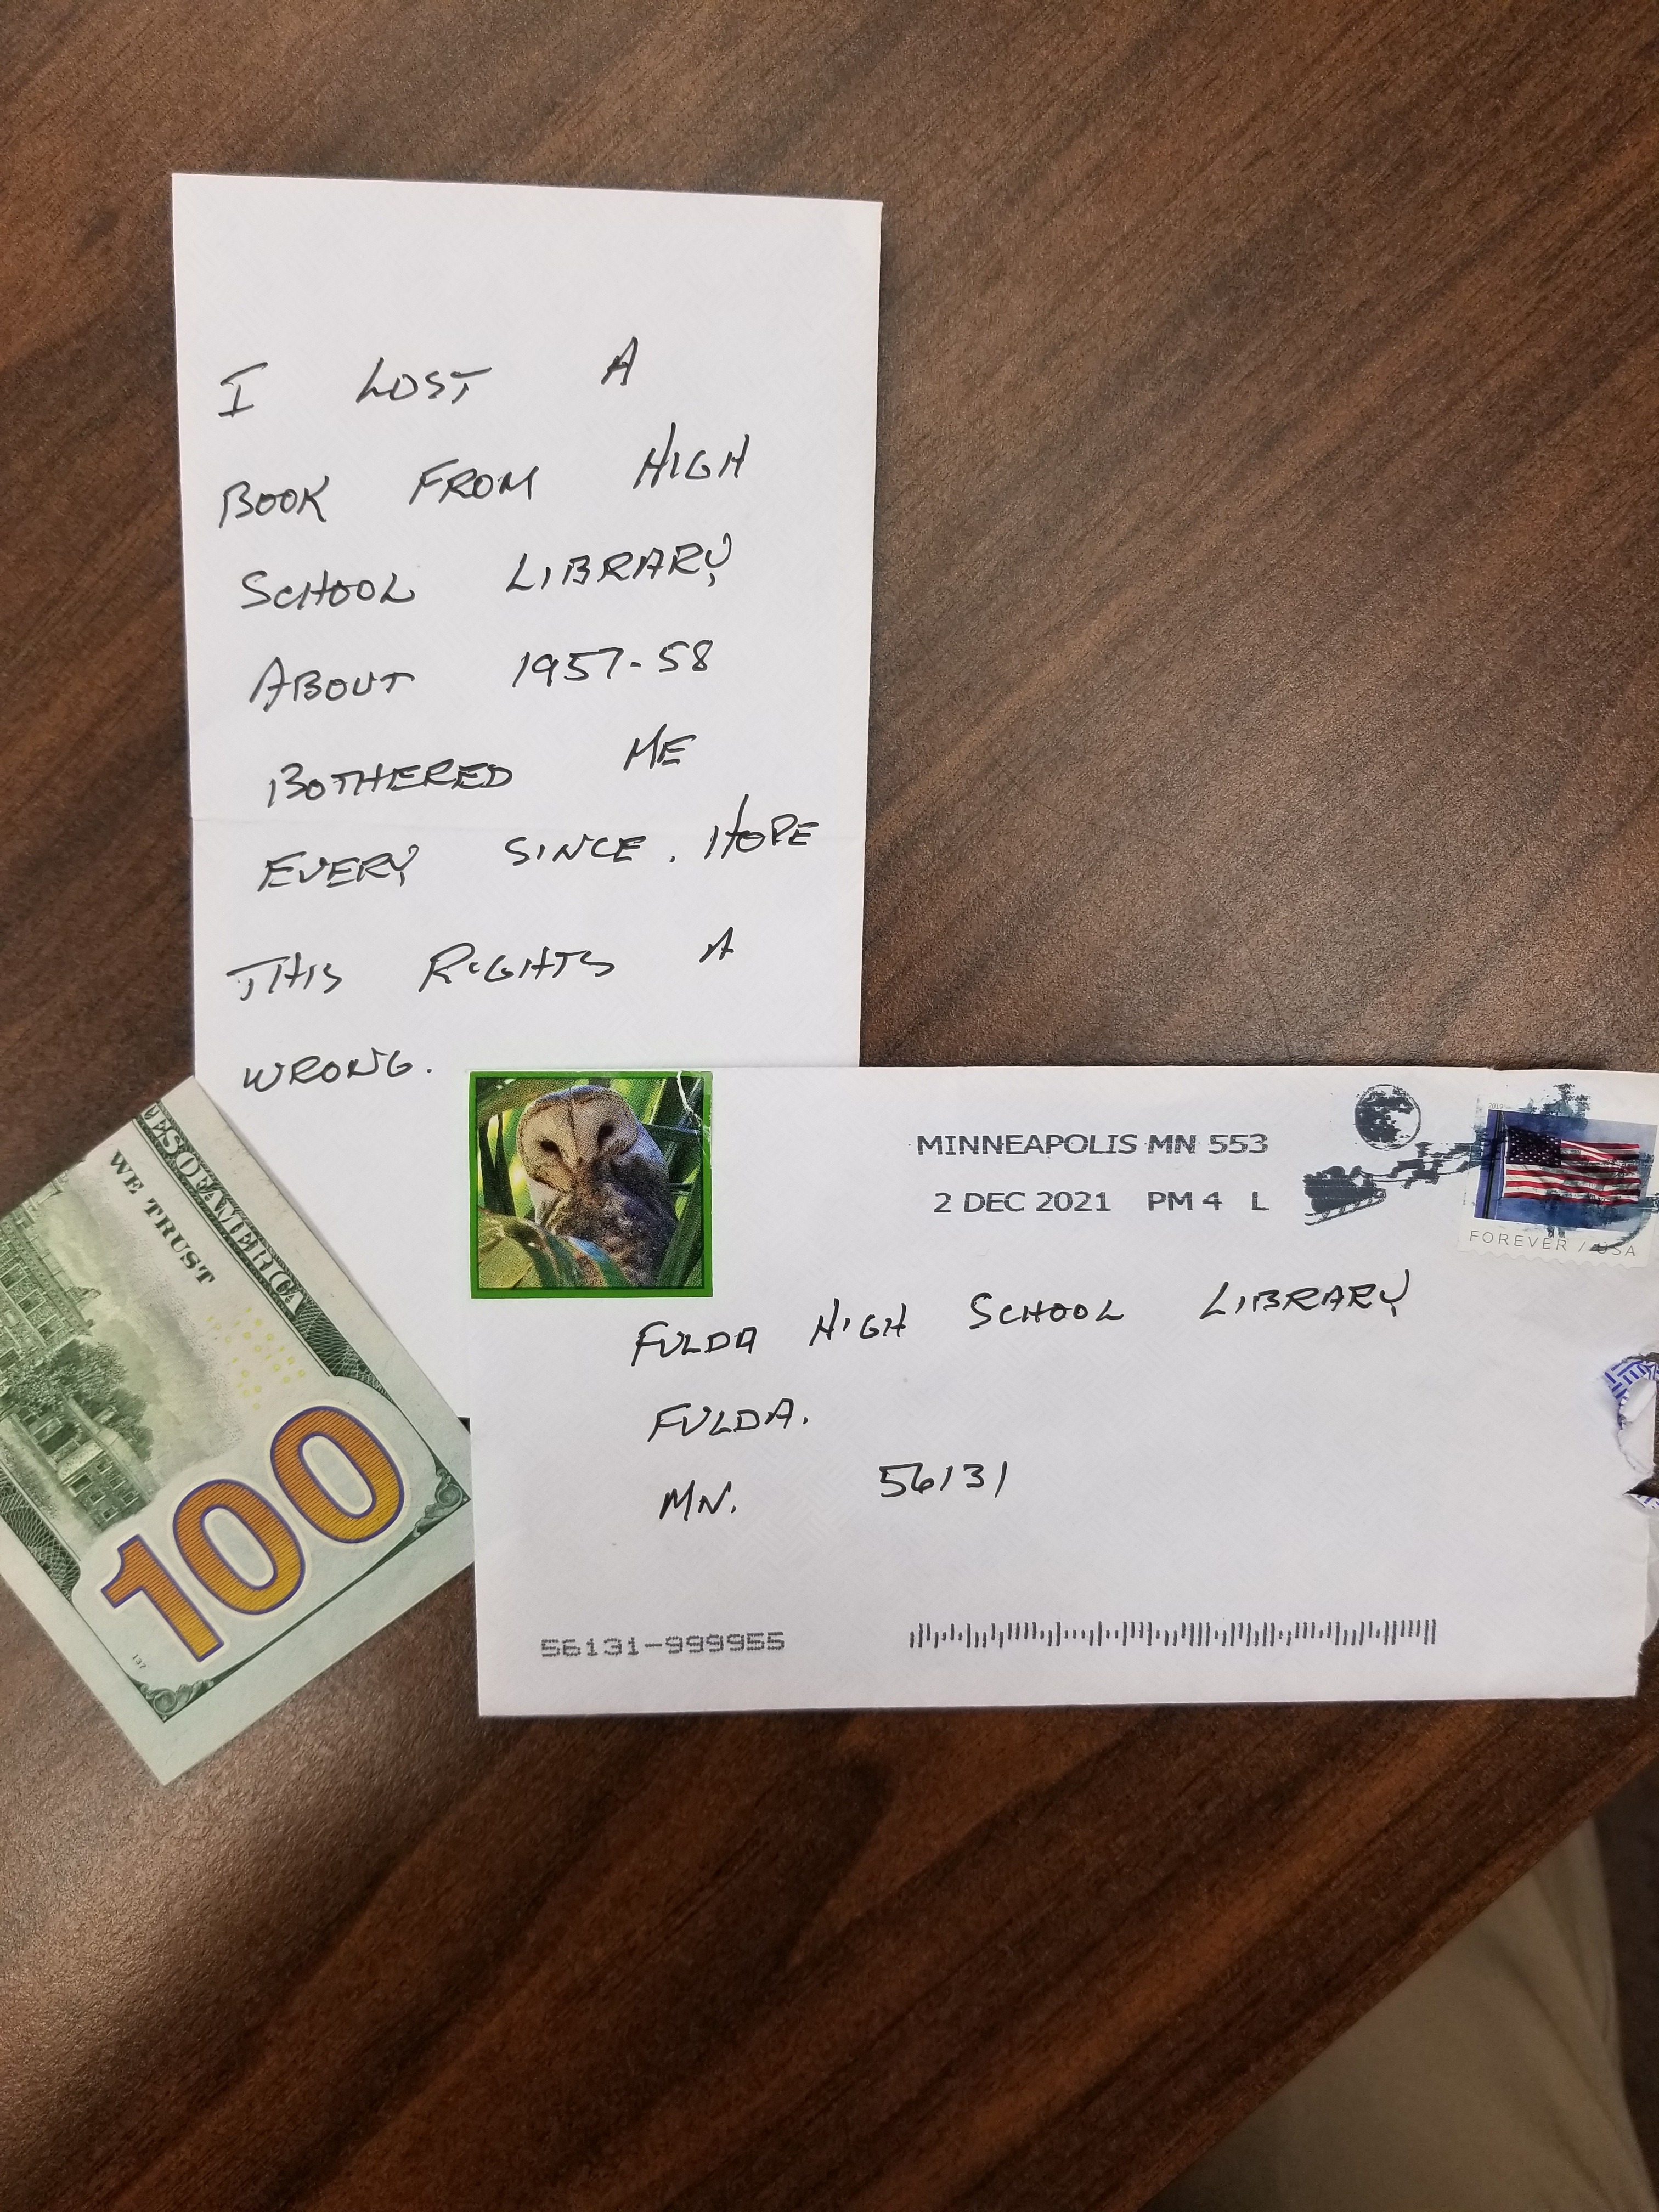 I LOST A
BOOK FROM HIGH
SCHOOL LIBRARY
ABOUT 1957-58
BOTHERED ME
EVERY SINCE. HOPE
THIS RIGHTS A
WRONG.
MINNEAPOLIS MN 553
2 DEC 2021 PM 4 L
2019
FOREVER / USA
FULDA HIGH SCHOOL LIBRARY
FULDA.
MN. 56131
56131-999955
ES OF AMERICA
WE TRUST
100
137